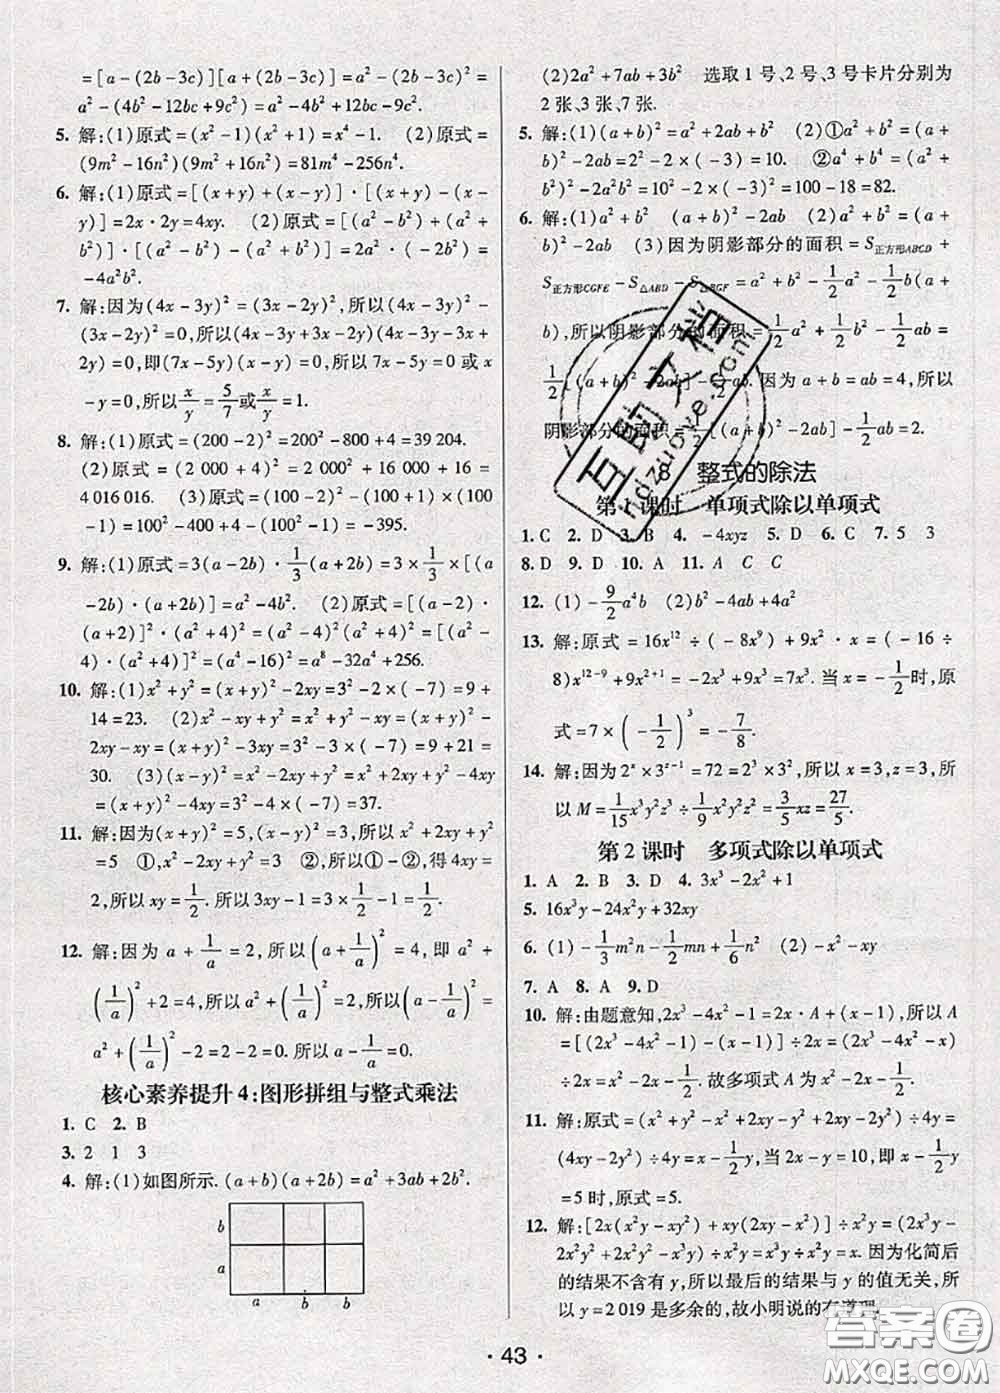 =[a-(2b-3c)][a+(2b-3c)]=a²-(2b-3c)²=
a²-(4b²-12bc+9c²)=a²-4b²+12bc-9c².
5. 解:(1)原式=(x²-1)(x²+1)=x⁴-1. (2)原式=
(9m²-16n²)(9m²+16n²)=81m⁴-256n⁴.
6. 解:(1)原式=[(x+y)+(x-y)]·[(x+y)-(x-
y)]=2x·2y=4xy. (2)原式=[(a²-b²)+(a²+
b²)]·[(a²-b²)-(a²+b²)]=2a²·(-2b²)=
-4a²b².
7. 解:因为(4x-3y)²=(3x-2y)²,所以(4x-3y)²-
(3x-2y)²=0,所以(4x-3y+3x-2y)(4x-3y-3x+
2y)=0,即(7x-5y)(x-y)=0.所以7x-5y=0或x-
y=0,所以x/y=5/7或x/y=1.
8. 解:(1)原式=(200-2)²=200²-800+4=39 204.
(2)原式=(2 000+4)²=2 000²+16 000+16=
4 016 016. (3)原式=(100-2)²-(100+1)(100-
1)=100²-400+4-100²+1=-395.
9. 解:(1)原式=3(a-2b)·1/3(a+2b)=3×1/3×[(a
-2b)·(a+2b)]=a²-4b². (2)原式=[(a-2)·
(a+2)]²·(a²+4)²=(a²-4)²(a²+4)²=[(a²-
4)·(a²+4)]²=(a⁴-16)²=a⁸-32a⁴+256.
10. 解:(1)x²+y²=(x+y)²-2xy=3²-2×(-7)=9+
14=23. (2)x²-xy+y²=x²+y²-xy=(x+y)²-
2xy-xy=(x+y)²-3xy=3²-3×(-7)=9+21=
30. (3)(x-y)²=x²-2xy+y²=x²+2xy+y²-
4xy=(x+y)²-4xy=3²-4×(-7)=37.
11. 解:因为(x+y)²=5,(x-y)²=3,所以x²+2xy+y²
=5 ①,x²-2xy+y²=3 ②,所以①-②,得4xy=
2,所以xy=1/2. 所以3xy-1=3×1/2-1=1/2.
12. 解:因为a+1/a=2,所以(a+1/a)²=4,即a²+
(1/a)²+2=4,所以a²+(1/a)²=2,所以(a-1/a)²=
a²+(1/a)²-2=2-2=0.所以a-1/a=0.
核心素养提升4:图形拼组与整式乘法
1. C 2. B
3. 2 1 3
4. 解:(1)如图所示.(a+b)(a+2b)=a²+3ab+2b².
b
a
a b b
(2)2a²+7ab+3b² 选取1号、2号、3号卡片分别为
2张、3张、7张.
5. 解:(1)(a+b)²=a²+2ab+b² (2)①a²+b²=(a+
b)²-2ab=2²-2×(-3)=10. ②a⁴+b⁴=(a²+
b²)²-2a²b²=10²-2×(-3)²=100-18=82.
6. 解:(1)a²+b² (a+b)²-2ab (2)a²+b²=(a+
b)²-2ab (3)因为阴影部分的面积=S正方形ABCD+
S正方形CGFE-S△ABD-S△BGF=a²+b²-1/2a²-1/2b(a+
b),所以阴影部分的面积=1/2a²+1/2b²-1/2ab=
1/2[(a+b)²-2ab]-1/2ab.因为a+b=ab=4,所以
阴影部分的面积=1/2[(a+b)²-2ab]-1/2ab=2.
8 整式的除法
第1课时 单项式除以单项式
1. C 2. D 3. B 4. -4xyz 5. D 6. C 7. 5 3
8. D 9. D 10. A 11. A C C
12. (1)-9/2a⁴b (2)b²-4ab+4a²
13. 解:原式=16x¹²÷(-8x⁹)+9x²·x=(-16÷
8)x¹²⁻⁹+9x²⁺¹=-2x³+9x³=7x³.当x=-1/2时,原
式=7×(-1/2)³=-7/8.
14. 解:因为2ˣ×3ᶻ⁻¹=72=2³×3²,所以x=3,z=3,所
以M=1/15x³y²z³÷1/9x²y²z²=3/5xz=27/5.
第2课时 多项式除以单项式
1. A 2. B 3. D 4. 3x³-2x²+1
5. 16x³y-24x²y+32xy
6. (1)-1/3m²n-1/2mn+1/6n² (2)-x²-xy
7. A 8. A 9. D
10. 解:由题意知,2x³-4x²-1=2x·A+(x-1),所以A
=[(2x³-4x²-1)-(x-1)]÷2x=(2x³-4x²-x)
÷2x=x²-2x-1/2. 故多项式A=x²-2x-1/2.
11. 解:原式=(x²+y²-x²+2xy-y²+2xy-2y²)÷4y=
(4xy-2y²)÷4y=x-1/2y,当2x-y=10,即x-1/2y
=5时,原式=5.
12. 解:[2x(x²y-xy²)+xy(2xy-x²)]÷x²y=(2x³y-
2x²y²+2x²y²-x³y)÷x²y=x³y÷x²y=x. 因为化简后
的结果不含有y,所以最后的结果与y的值无关,所
以y=2 019是多余的,故小明说的有道理.
· 43 ·
互助文档
hdzuoye.com
答案圈
MXQE.COM